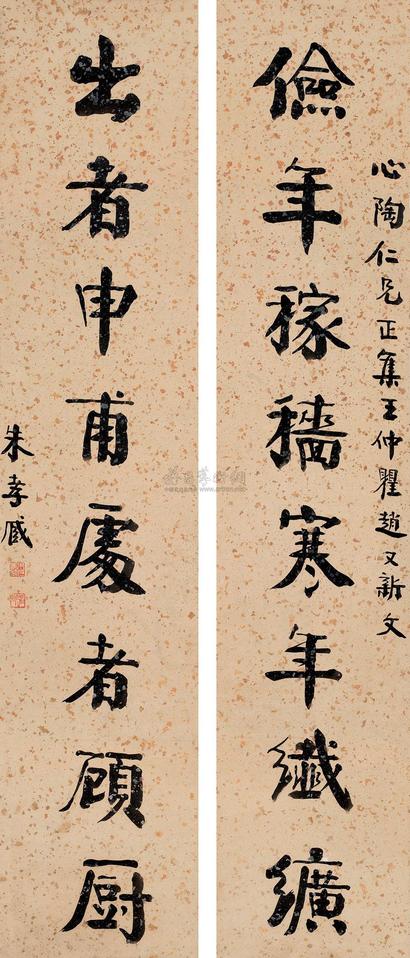 心陶仁兄正集王仲瞿趙又新文
儉年稼穡寒年纖纊
出者申甫處者顧厨
朱孝臧